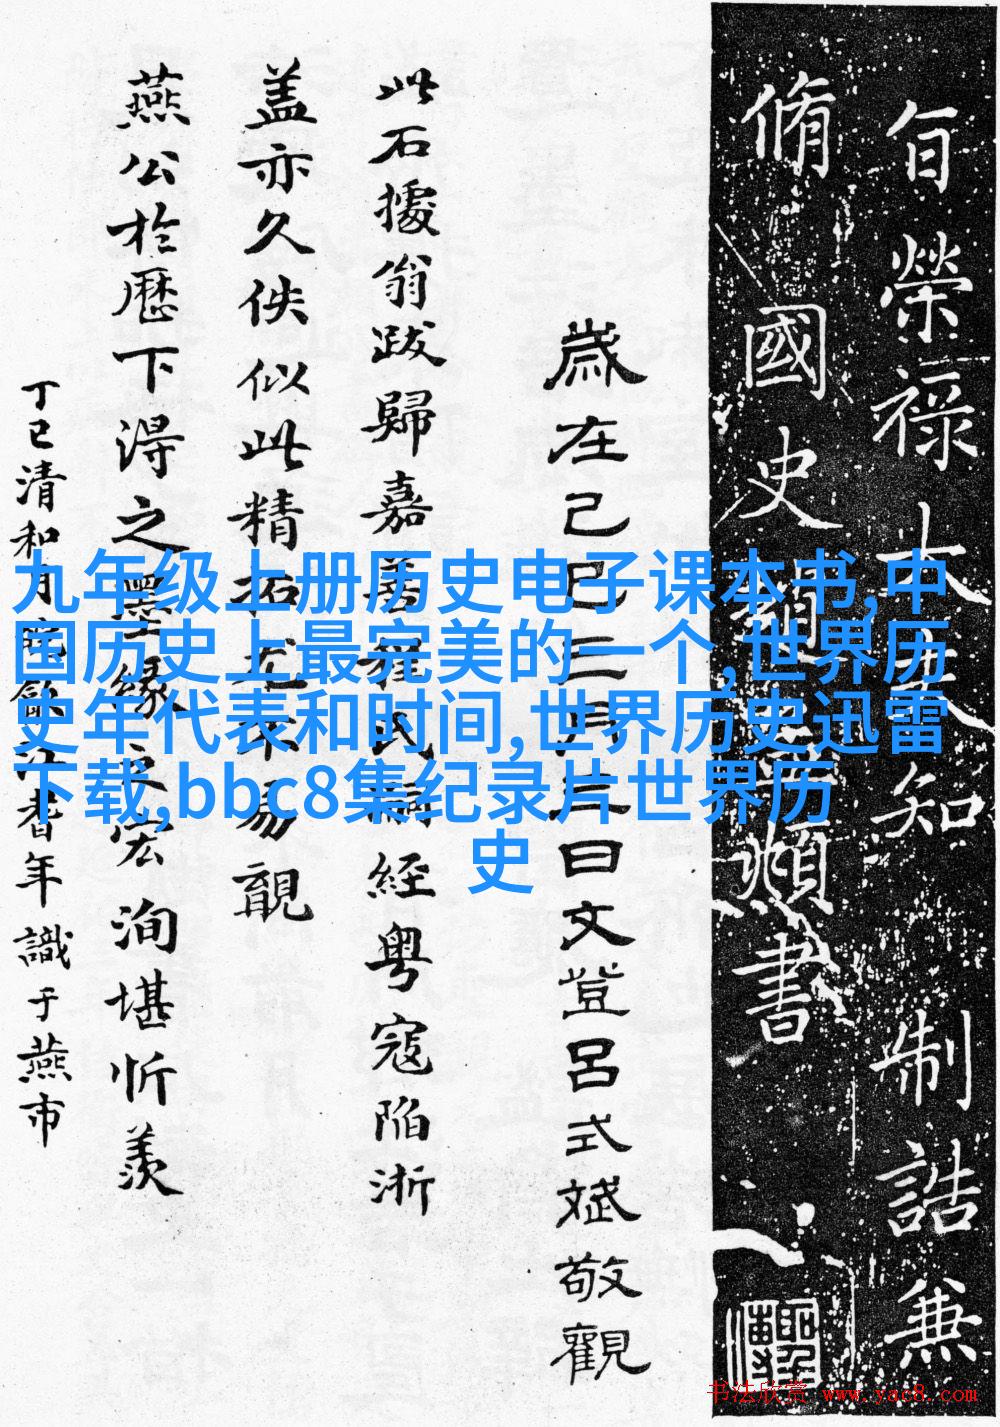 旨榮祿大夫知 制誥兼
脩國史 頫書
歲在己巳三月三日文登呂式斌敬觀
此石據翁跋歸嘉善程氏嗣經粵寇陷浙
盖亦久佚似此精拓本不易覯
燕公於歷下得之墨緣之宏洵堪忻羨
丁巳清和月 年識于燕市
九年级上册历史电子课本书,中
国历史上最完美的一个,世界历
史年代表和时间,世界历史迅雷
下载,bbc8集纪录片世界历
史
书法欣赏 www.yac8.com